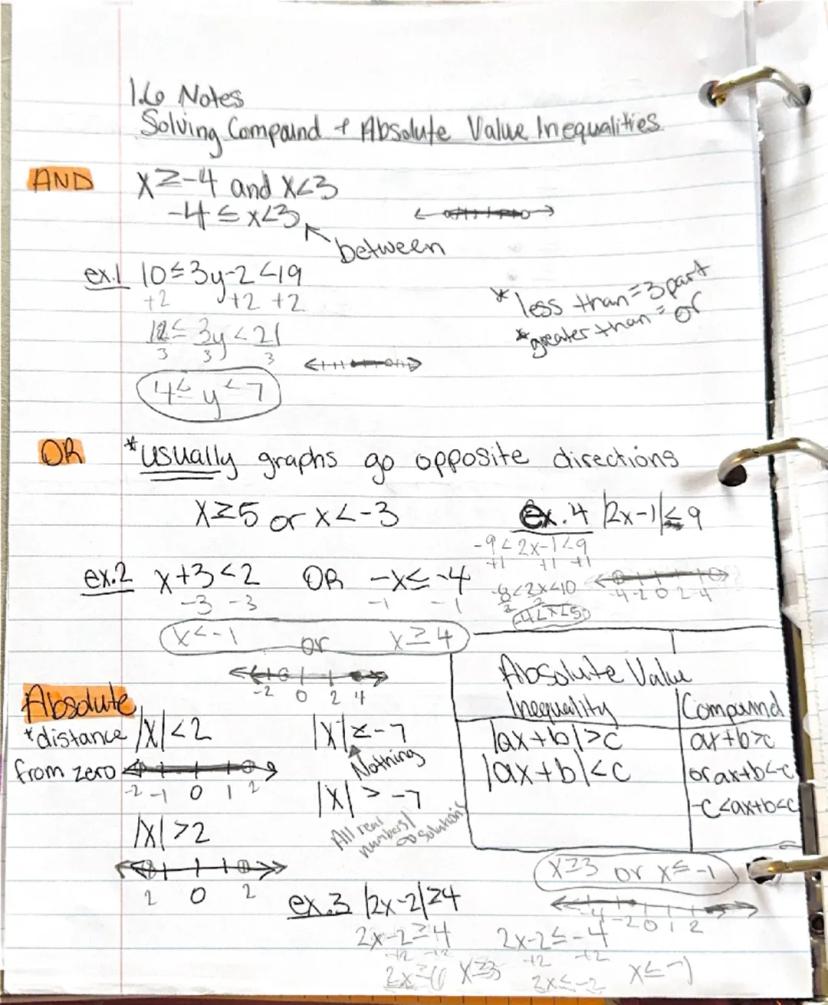 1.6 Notes
Solving Compound + Absolute Value Inequalities
AND x≥-4 and x<3
-4≤x<3
between
ex.1 10≤3y-2<19
+2 +2 +2
12≤3y<21
3 3 3
4≤y<7
*less than=3part
*greater than=or
OR *usually graphs go opposite directions
x≥5 or x<-3
ex.2 x+3<2 OR -x≤-4
-3 -3 -1 -1
x<-1 or x≥4
-2 0 2 4
ex.4 |2x-1|≤9
-9<2x-1<9
+1 +1 +1
-8<2x<10
2 2
-4<x<5
-4 -2 0 2 4
Absolute
*distance
from zero
|x|<2
-2 -1 0 1 2
|x|>2
2 0 2
|x|≤-7
Nothing
|x|>-7
All real
numbers/
∞ solutions
Absolute Value
Inequality Compound
|ax+b|>c ax+b>c
|ax+b|<c or ax+b<-c
-c<ax+b<c
ex.3 |2x-2|≥4
2x-2≥4 2x-2≤-4
+2 +2 +2 +2
2x≥6 x≥3 2x≤-2 x≤-1
x≥3 or x≤-1
-4 -2 0 1 2